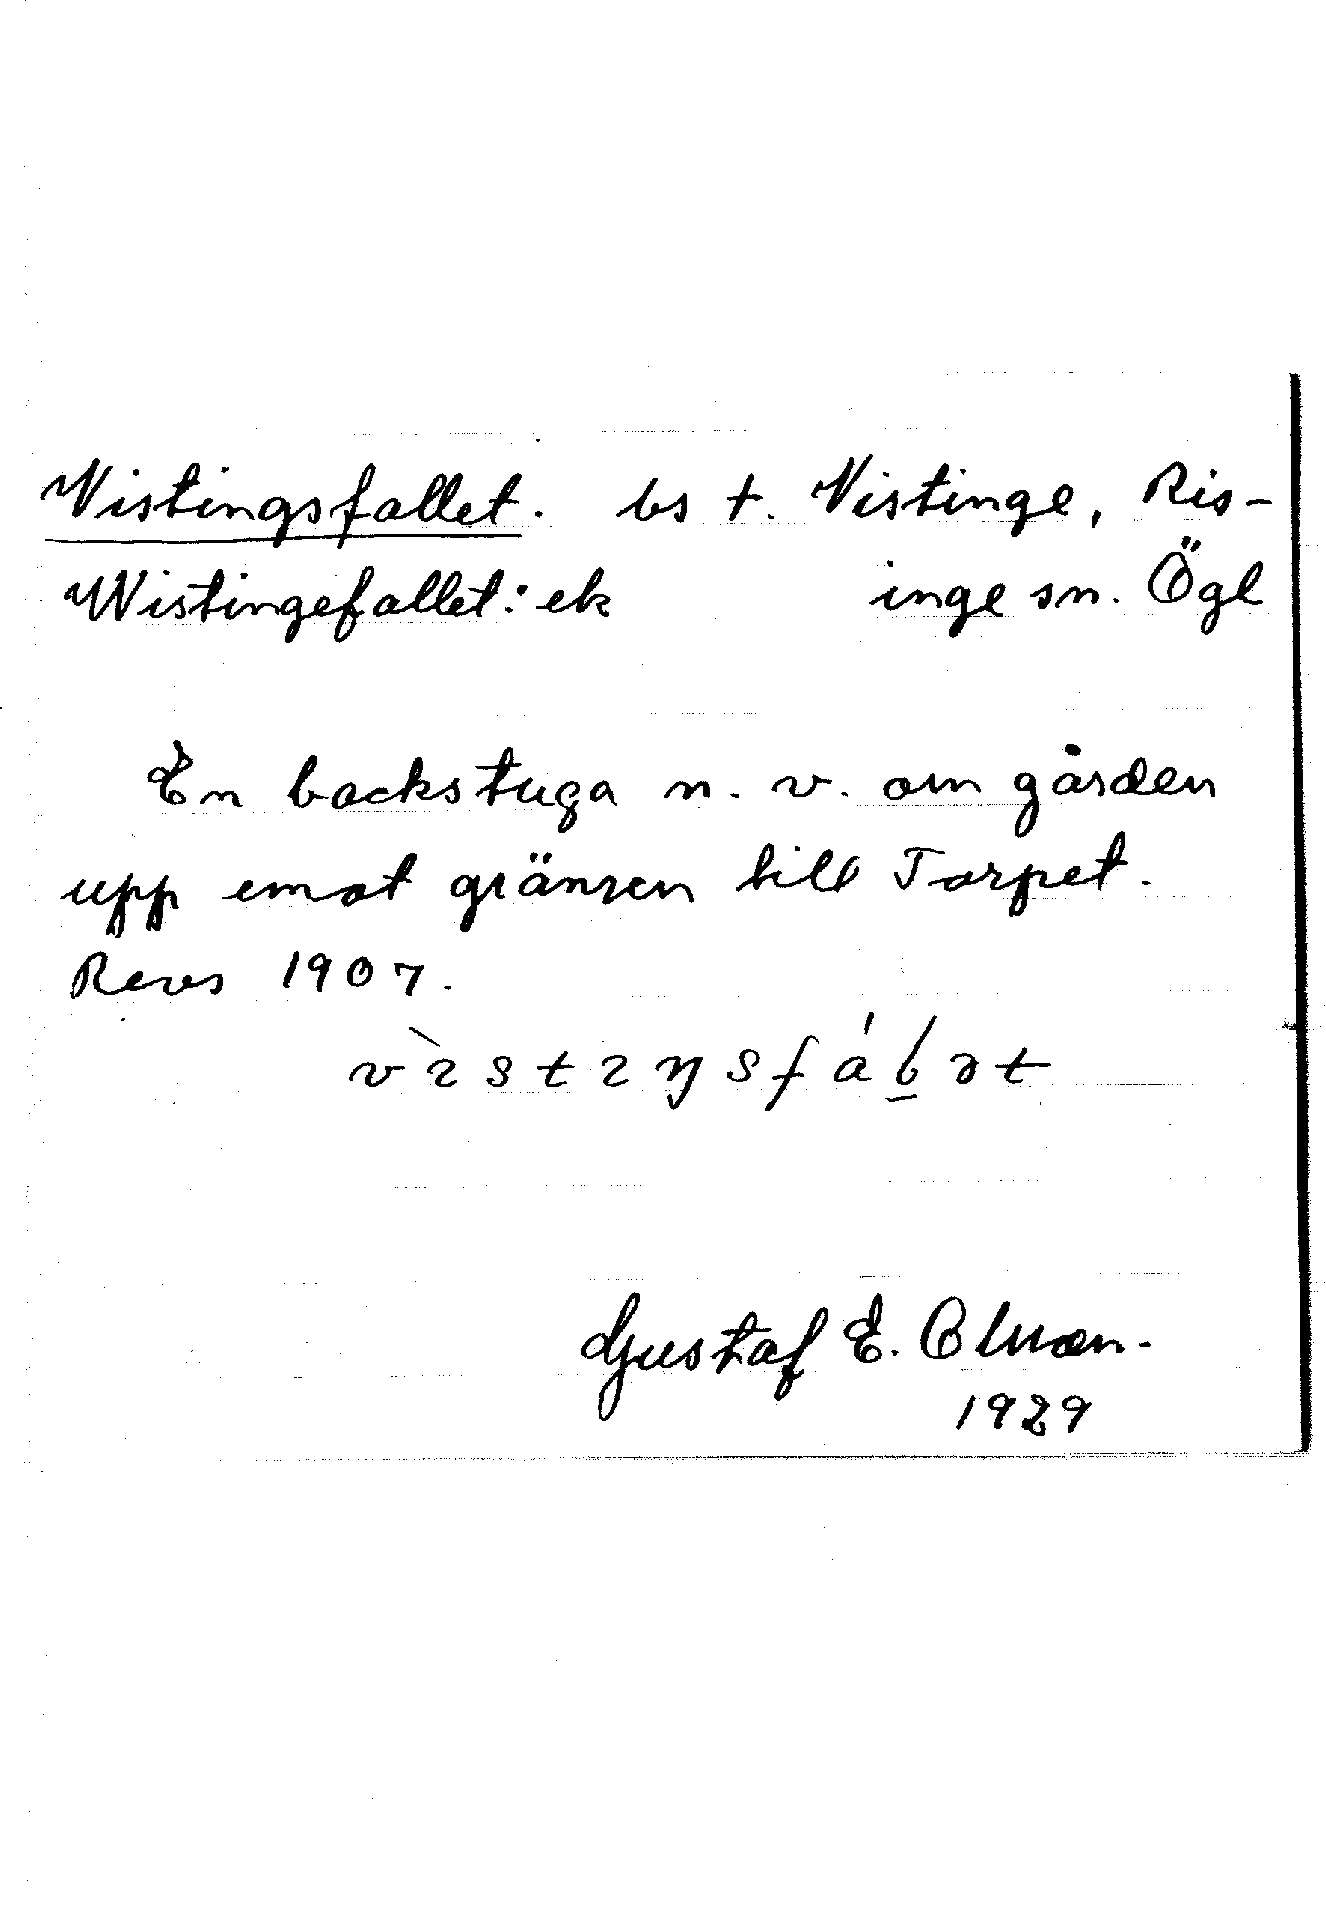 Vistingsfallet. bs t. Vistinge, Ris-
Wistingefallet: ek inge sn. Ögl
En backstuga n. v. om gården
upp emot gränsen till Torpet.
Revs 1907.
Gustaf E. Olman.
1929